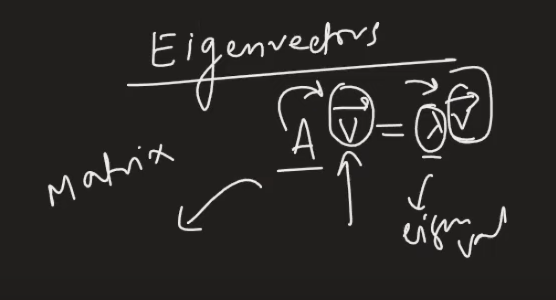 Eigenvectors
A v⃗ = λ v⃗
Matrix
eigen val